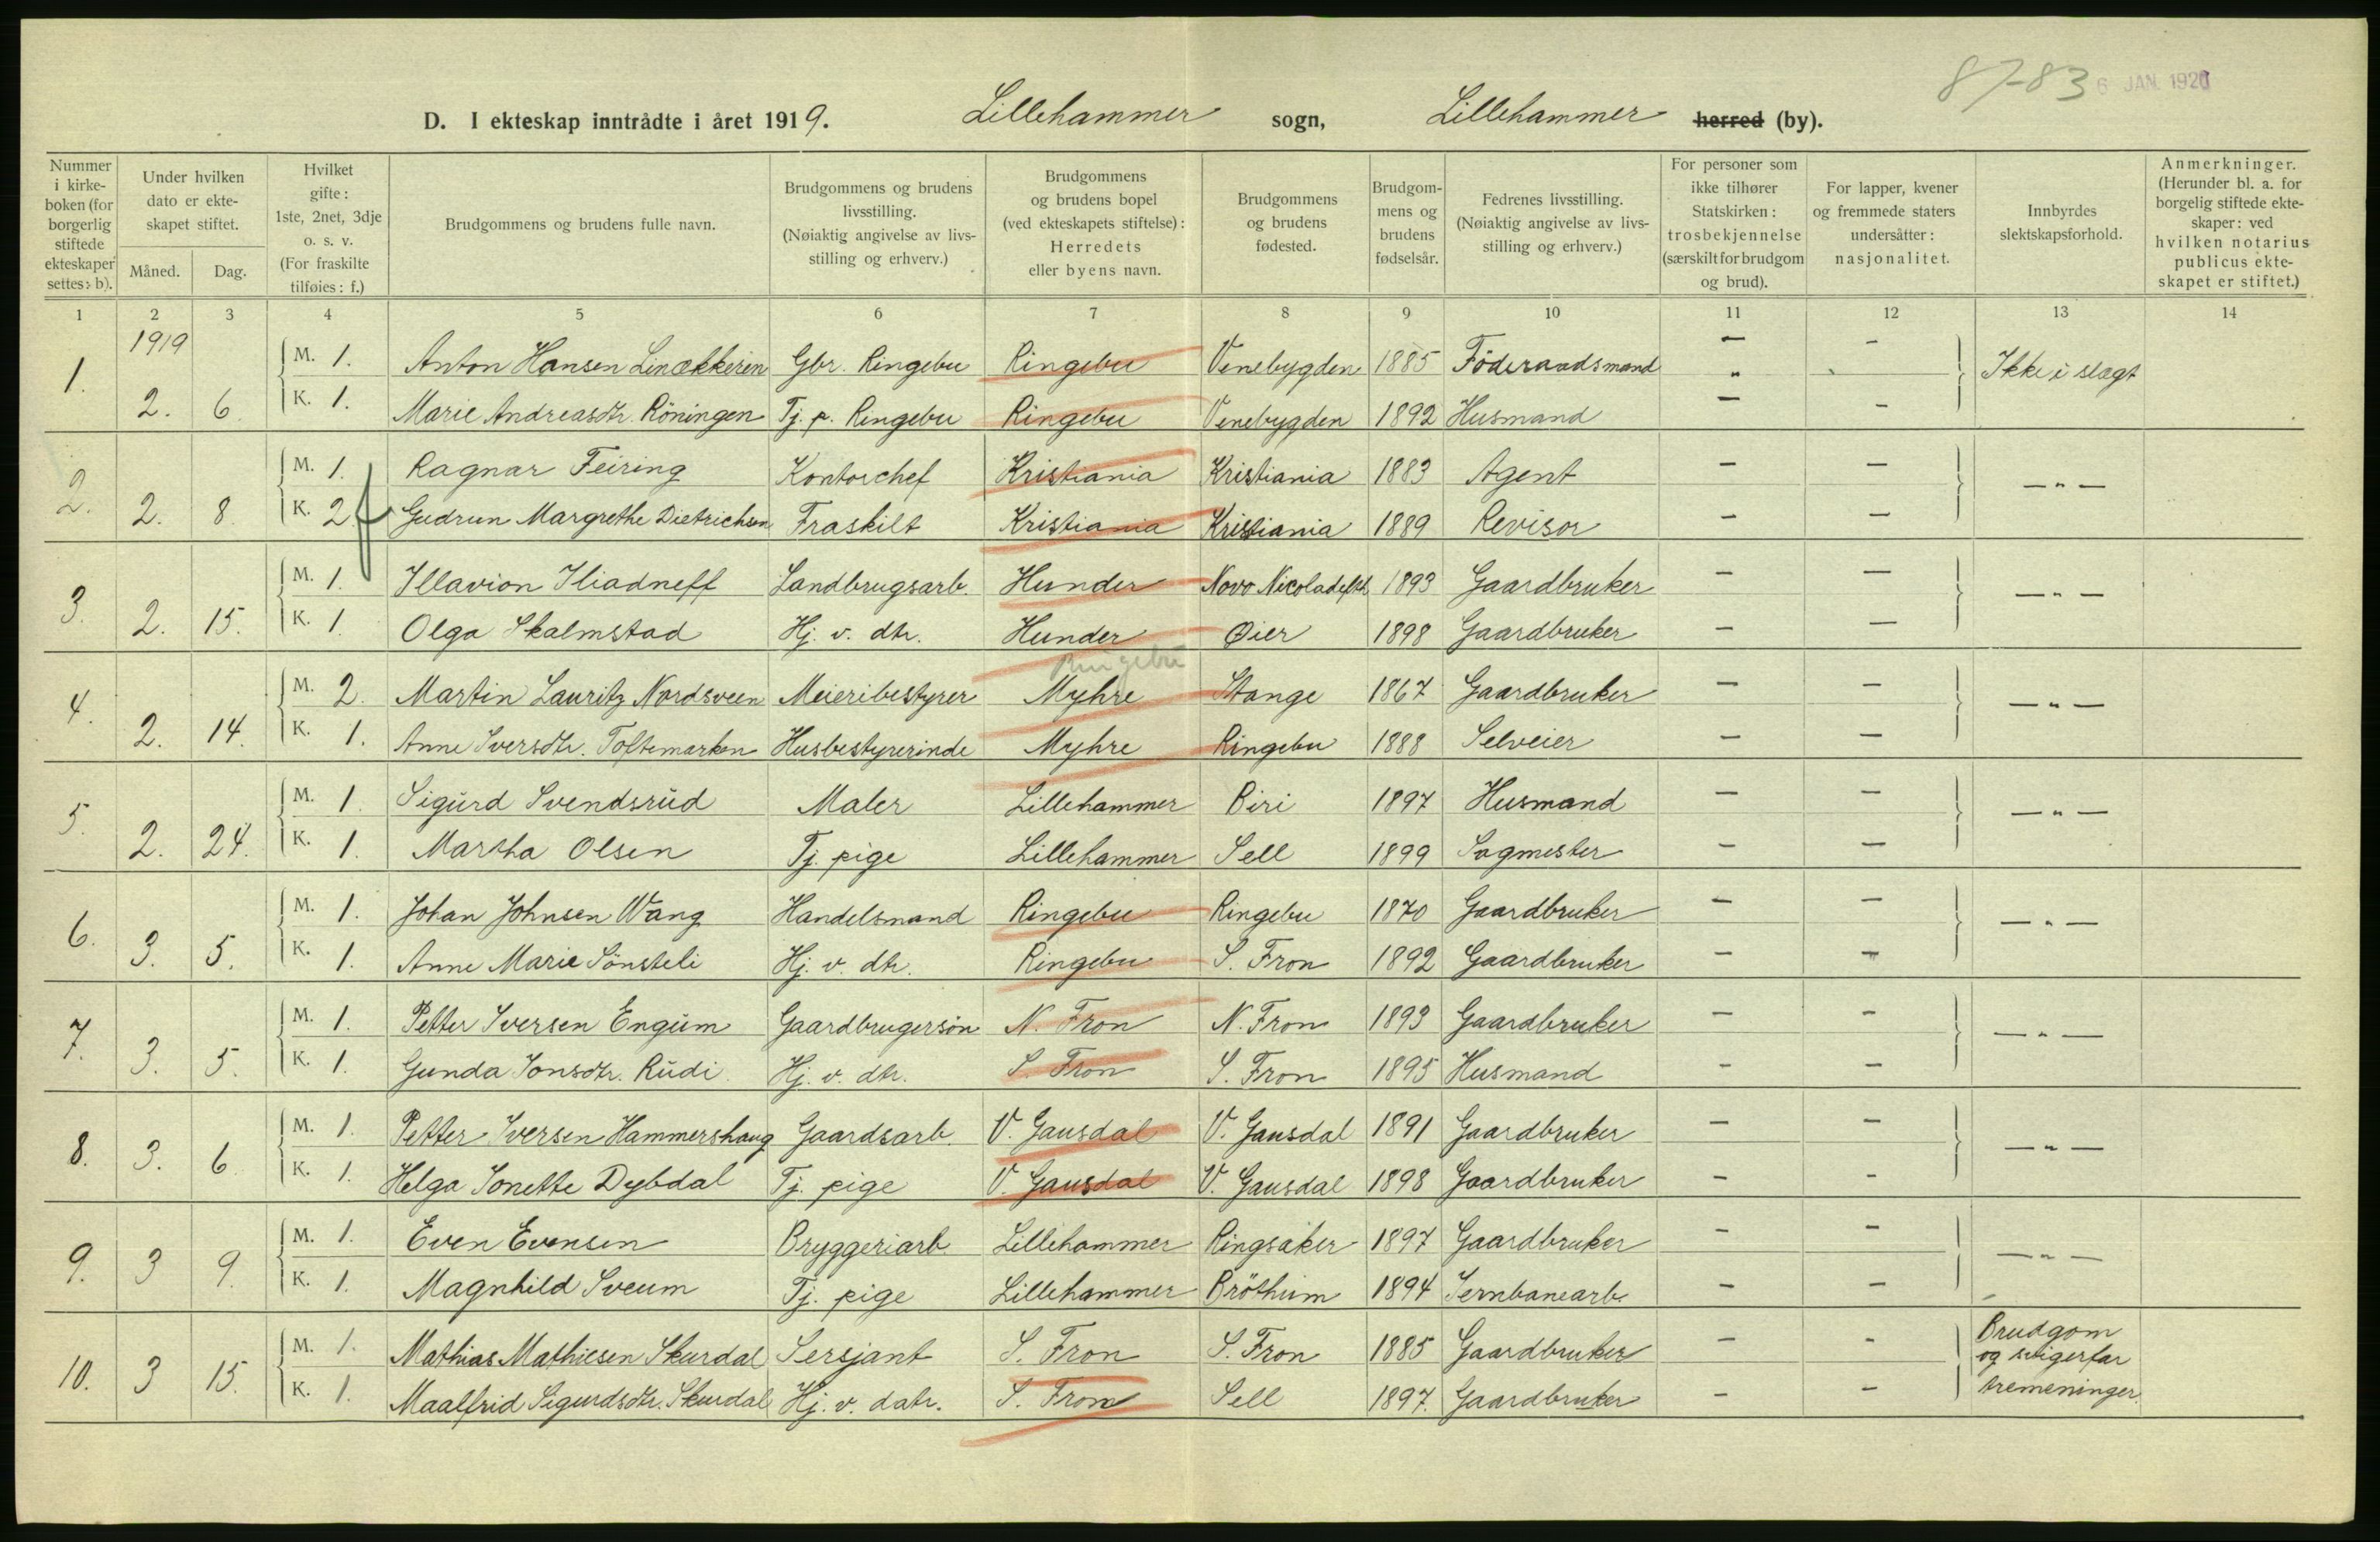 87-83 6 JAN. 1920
D. I ekteskap inntrådte i året 1919. Lillehammer sogn, Lillehammer herred (by).
Nummer i kirkeboken (for borgerlig stiftede ekteskaper settes: b). | Under hvilken dato er ekteskapet stiftet. Måned. Dag. | Hvilket gifte: 1ste, 2net, 3dje o. s. v. (For fraskilte tilføies: f.) | Brudgommens og brudens fulle navn. | Brudgommens og brudens livsstilling. (Nøiaktig angivelse av livsstilling og erhverv.) | Brudgommens og brudens bopel (ved ekteskapets stiftelse): Herredets eller byens navn. | Brudgommens og brudens fødested. | Brudgommens og brudens fødselsår. | Fedrenes livsstilling. (Nøiaktig angivelse av livsstilling og erhverv.) | For personer som ikke tilhører Statskirken: trosbekjennelse (særskilt for brudgom og brud). | For lapper, kvener og fremmede staters undersåtter: nasjonalitet. | Innbyrdes slektskapsforhold. | Anmerkninger. (Herunder bl. a. for borgelig stiftede ekteskaper: ved hvilken notarius publicus ekteskapet er stiftet.)
1 2 3 4 5 6 7 8 9 10 11 12 13 14
1919
1. M. 1. Anton Hansen Linækkeren Gbr. Ringebu Ringebu Venebygden 1885 Föderaadsmand - - Ikke i slægt
2. 6. K. 1. Marie Andreasdtr. Röningen Tj. p. Ringebu Ringebu Venebygden 1892 Husmand - -
2. M. 1. Ragnar Feiring Kontorchef Kristiania Kristiania 1883 Agent - - -"-
2. 8. K. 2 f Gudrun Margrethe Dietrichsen Fraskilt Kristiania Kristiania 1889 Revisor - -
3. M. 1. Illavion Iliadneff Landbrugsarb. Hunder Novo 1893 Gaardbruker - - -"-
2. 15. K. 1. Olga Skalmstad Hj. v. dtr. Hunder Øier 1898 Gaardbruker - -
Ringebu
4. M. 2. Martin Lauritz Nordsveen Meieribestyrer Myhre Stange 1867 Gaardbruker - - -"-
2. 14. K. 1. Anne Iversdtr. Toftemarken Husbestyrerinde Myhre Ringebu 1888 Selveier - -
5. M. 1. Sigurd Svendsrud Maler Lillehammer Biri 1897 Husmand - - -"-
2. 24. K. 1. Martha Olsen Tj. pige Lillehammer Sell 1899 Sagmester - -
6. M. 1. Johan Johnsen Wang Handelsmand Ringebu Ringebu 1870 Gaardbruker - - -"-
3. 5. K. 1. Anne Marie Sönsteli Hj. v. dtr. Ringebu S. Fron 1892 Gaardbruker - -
7. M. 1. Petter Iversen Engum Gaardbrugersön N. Fron N. Fron 1893 Gaardbruker - - -"-
3. 5. K. 1. Gunda Jonsdtr. Rudi Hj. v. dtr. S. Fron S. Fron 1895 Husmand - -
8. M. 1. Petter Iversen Hammershaug Gaardsarb. V. Gausdal V. Gausdal 1891 Gaardbruker - - -"-
3. 6. K. 1. Helga Jonette Dybdal Tj. pige V. Gausdal V. Gausdal 1898 Gaardbruker - -
9. M. 1. Even Evensen Bryggeriarb. Lillehammer Ringsaker 1897 Gaardbruker - - -"-
3 9. K. 1. Magnhild Sveum Tj. pige Lillehammer Bröthum 1894 Jernbanearb. - -
10. M. 1. Mathias Mathiesen Skurdal Sersjant S. Fron S. Fron 1885 Gaardbruker - - Brudgom og svigerfar
3 15. K. 1. Maalfrid Sigurdsdtr. Skurdal Hj. v. datr. S. Fron Sell 1897. Gaardbruker - - tremeninger.